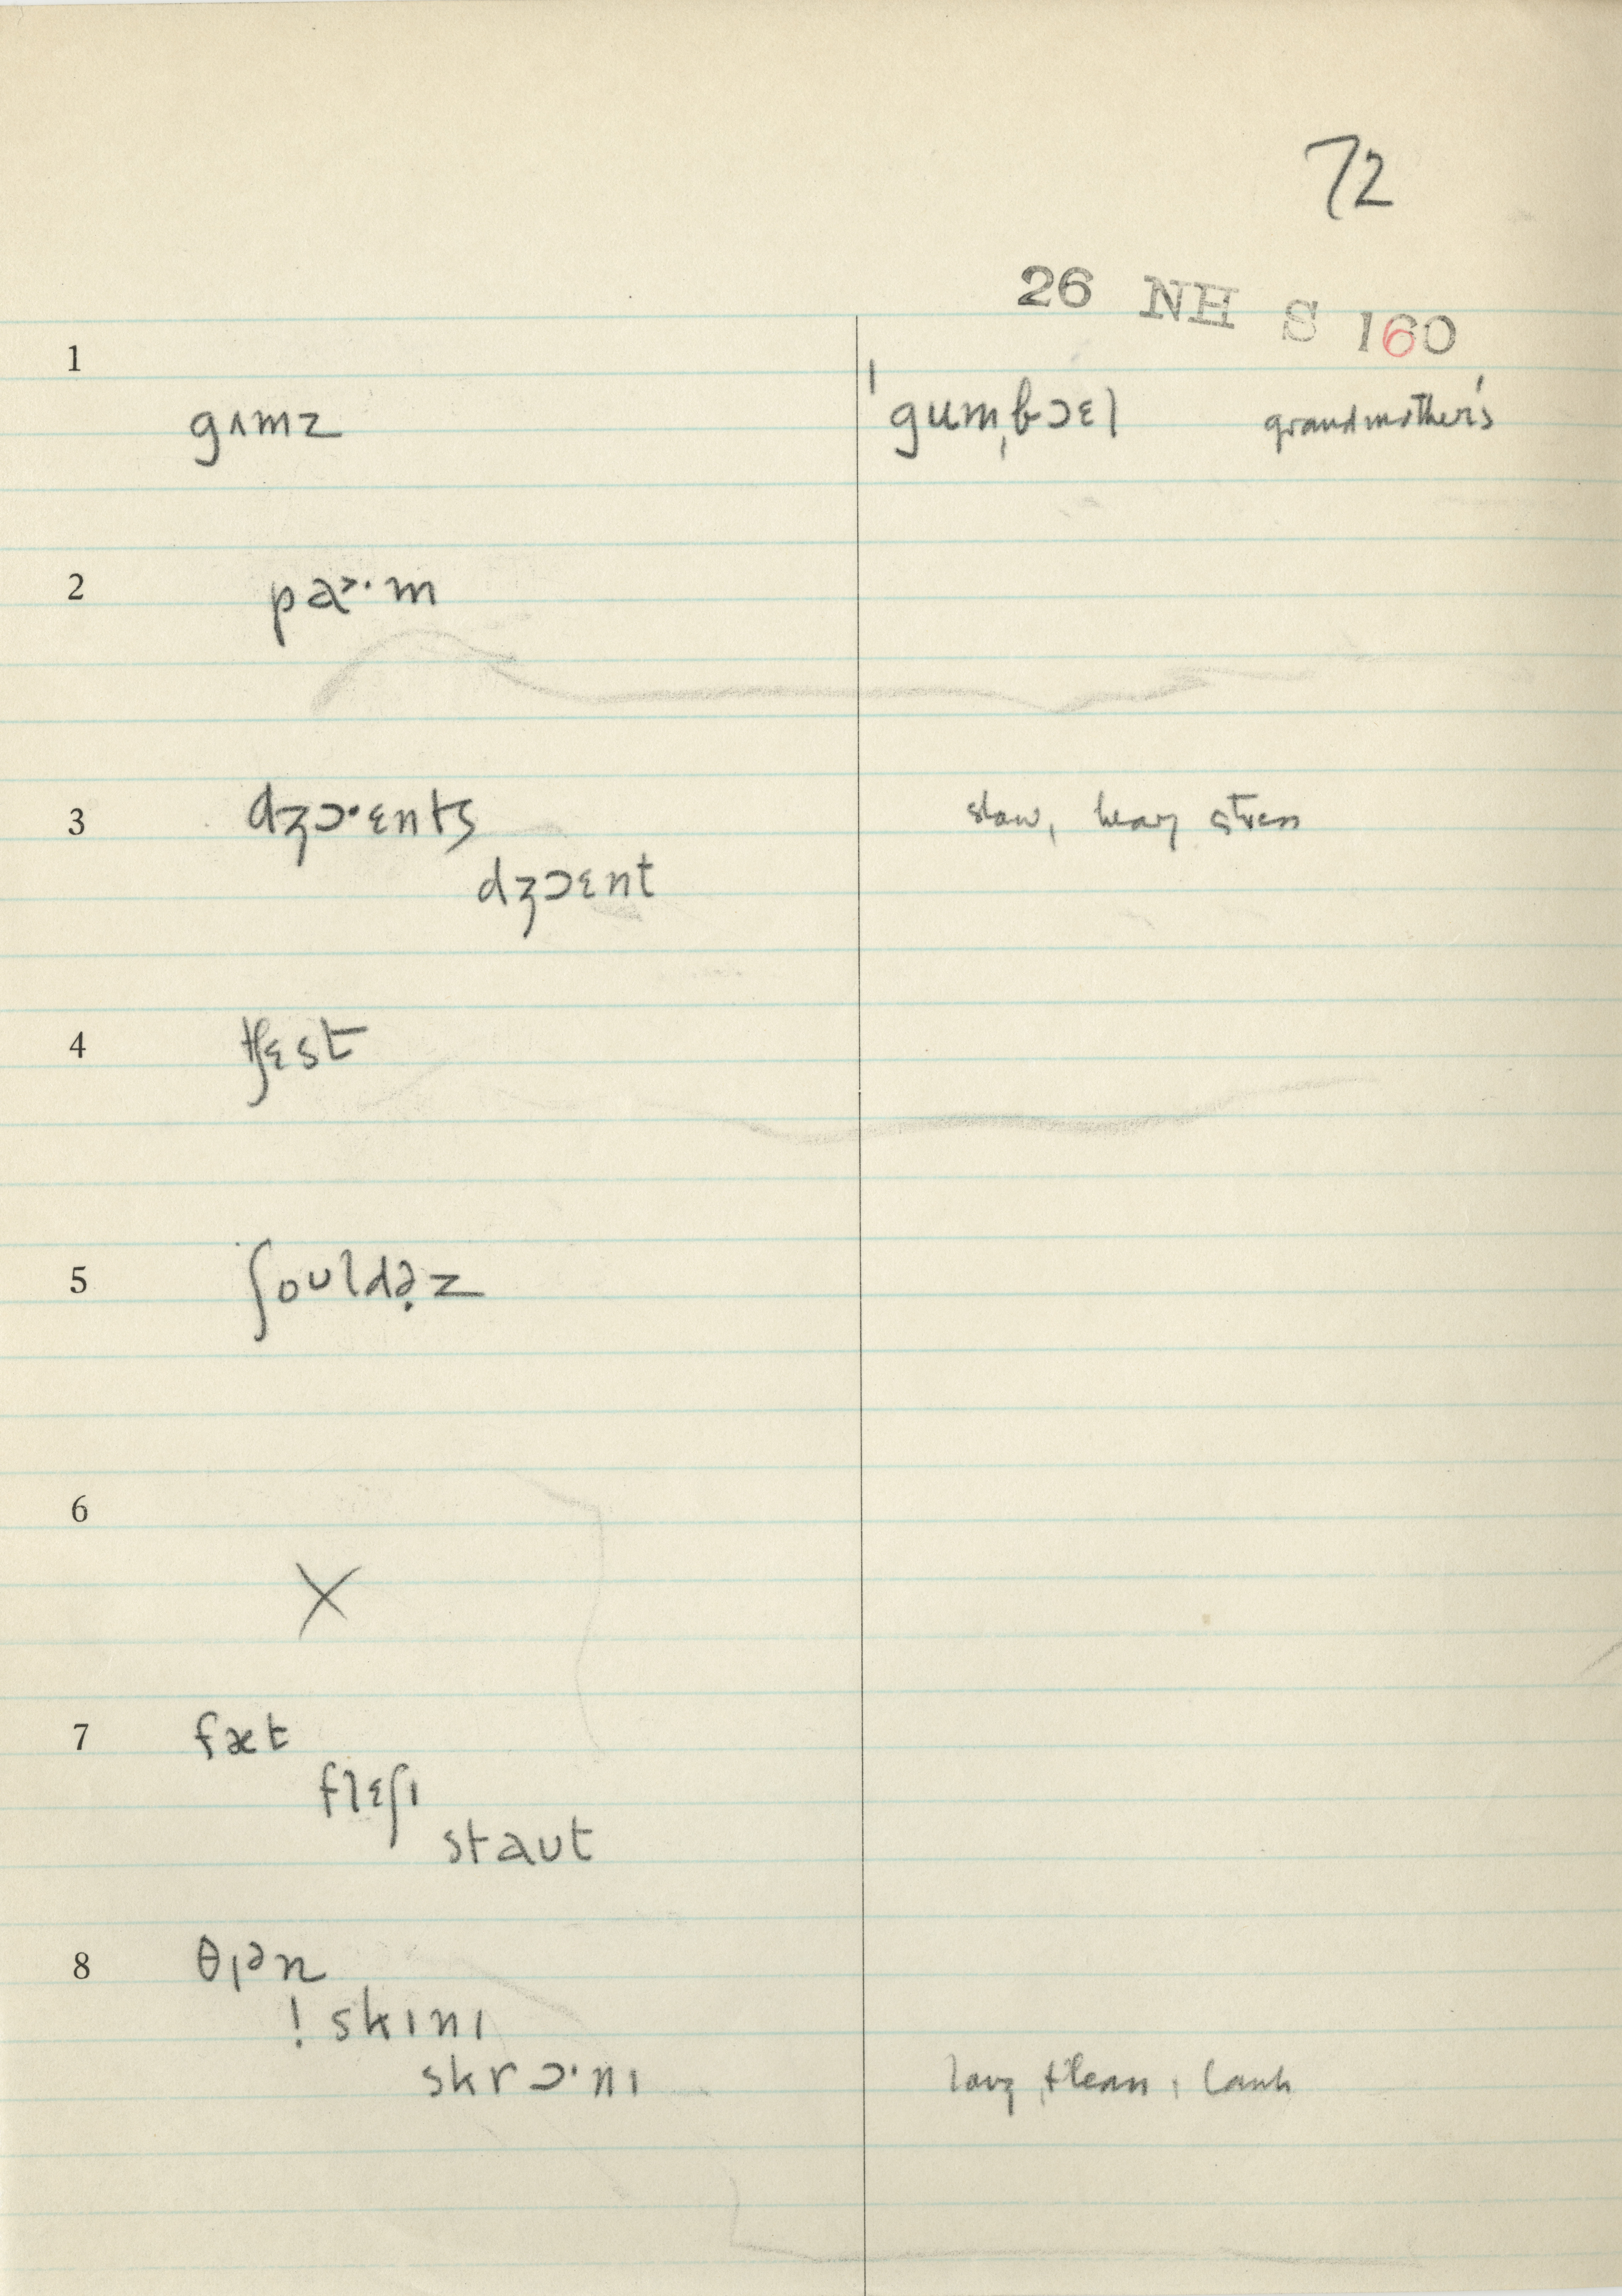 72
26 NH S 160
1
gʌmz ˈgumˌbɔɛl grandmother's
2 pa˃·m
3 dʒɔ·ɛnts slow, heavy stress
dʒɔɛnt
4 tʃɛst
5 ʃoʊldə̣z
6
X
7 fæt
flɛʃɪ
staʊt
8 θɪən
! skɪnɪ
skrɔ·nɪ long + lean, lank